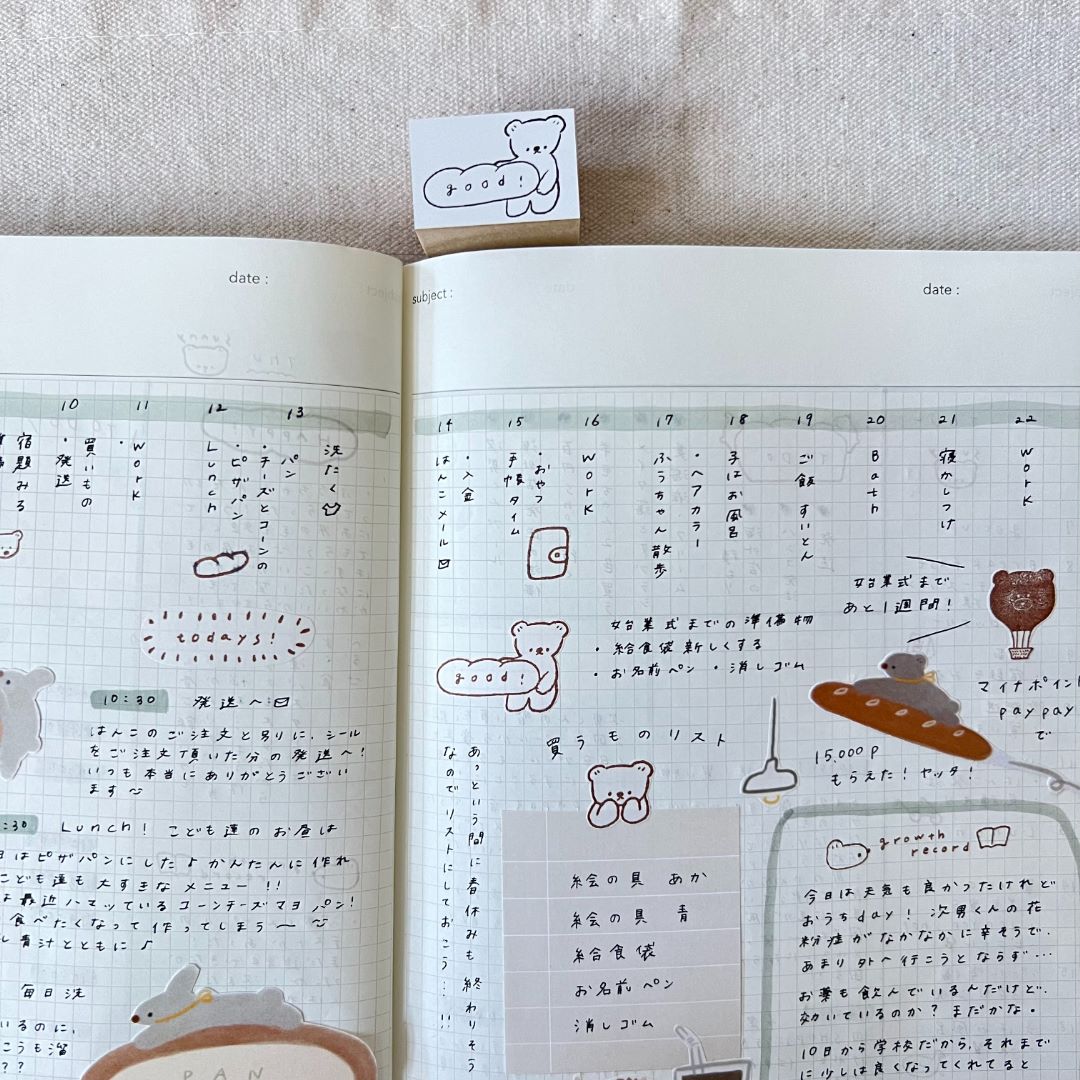 good!
date :
10
11
12
13
買いもの
・発送
・Work
Lunch
・ピザパン
・チーズとコーンの
パン
洗たく
todays!
10:30 発送へ
はんこのご注文と別りに、シール
をご注文頂いた分の発送へ!
いつも本当にありがとうござい
ます
:30 Lunch! こども達のお昼は
はピザパンにした♪かんたんに作れ
こども達も大すきなメニュー!!
は最近ハマッているコーンチーズマヨパン!
食べたくなって作ってしまう〜
青汁とともに♪
毎日洗
いるのに、
こうも溜
??
PAN
subject :
date :
14
15
16
17
18
19
20
21
22
はんこメール
・入金
手帳タイム
・おやつ
Work
ふうちゃん散歩
・ヘアカラー
子はお風呂
ご飯 すいとん
Bath
寝かしつけ
Work
始業式まで
あと1週間!
good!
始業式までの準備物
・給食袋新しくする
・お名前ペン ・消しゴム
マイナポイント
paypay
で
15,000P
もらえた!ヤッタ!
あっという間に春休みも終わりそう
なのでリストにしておこう..!!
買うものリスト
絵の具 あか
絵の具 青
給食袋
お名前ペン
消しゴム
growth
record
今日は天気も良かったけれど
おうちday! 次男くんの花
粉症がなかなかに辛そうで、
あまり外へ行こうとならず…
お薬も飲んでいるんだけど、
効いているのか?まだかな。
10日から学校だから、それまで
に少しは良くなってくれてると